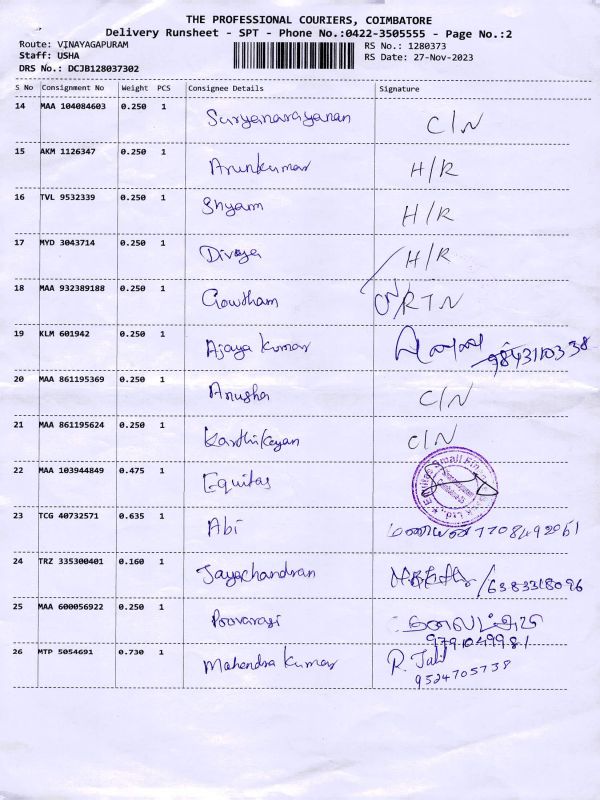 THE PROFESSIONAL COURIERS, COIMBATORE
Delivery Runsheet - SPT - Phone No.:0422-3505555 - Page No.:2
Route: VINAYAGAPURAM RS No.: 1280373
Staff: USHA RS Date: 27-Nov-2023
DRS No.: DCJB128037302
S No Consignment No Weight PCS Consignee Details Signature
14 MAA 104084603 0.250 1 Suryanarayanan C/N
15 AKM 1126347 0.250 1 Arunkumar H/R
16 TVL 9532339 0.250 1 Shyam H/R
17 MYD 3043714 0.250 1 Divya H/R
18 MAA 932389188 0.250 1 Gowtham RTN
19 KLM 601942 0.250 1 Ajaya Kumar 9843110338
20 MAA 861195369 0.250 1 Anusha C/N
21 MAA 861195624 0.250 1 Karthikeyan C/N
22 MAA 103944849 0.475 1 Equitas
23 TCG 40732571 0.635 1 Abi 7708492061
24 TRZ 335300401 0.160 1 Jayachandran /6383318096
25 MAA 600056922 0.250 1 Poovarasi
9791049981
26 MTP 5054691 0.730 1 Mahendra Kumar R.
9524705738